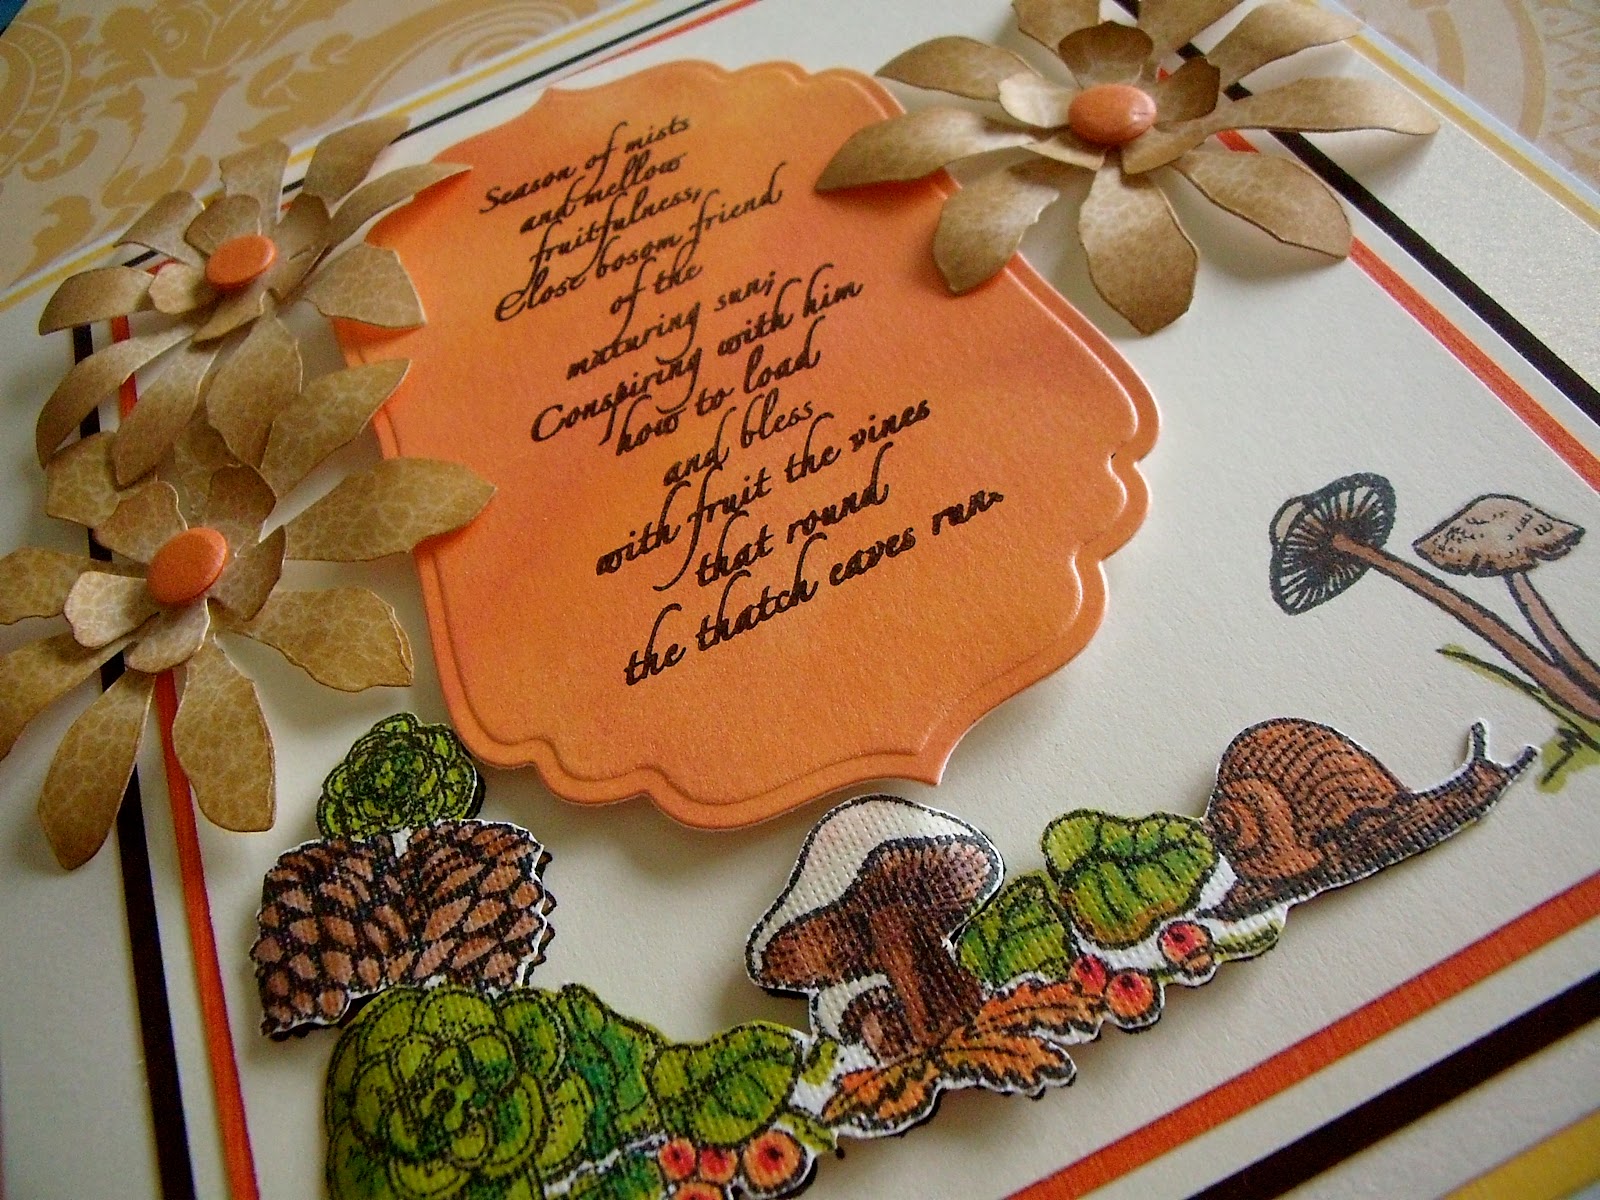 Season of mists
and mellow
fruitfulness,
Close bosom friend
of the
maturing sun;
Conspiring with him
how to load
and bless
with fruit the vines
that round
the thatch eaves run.